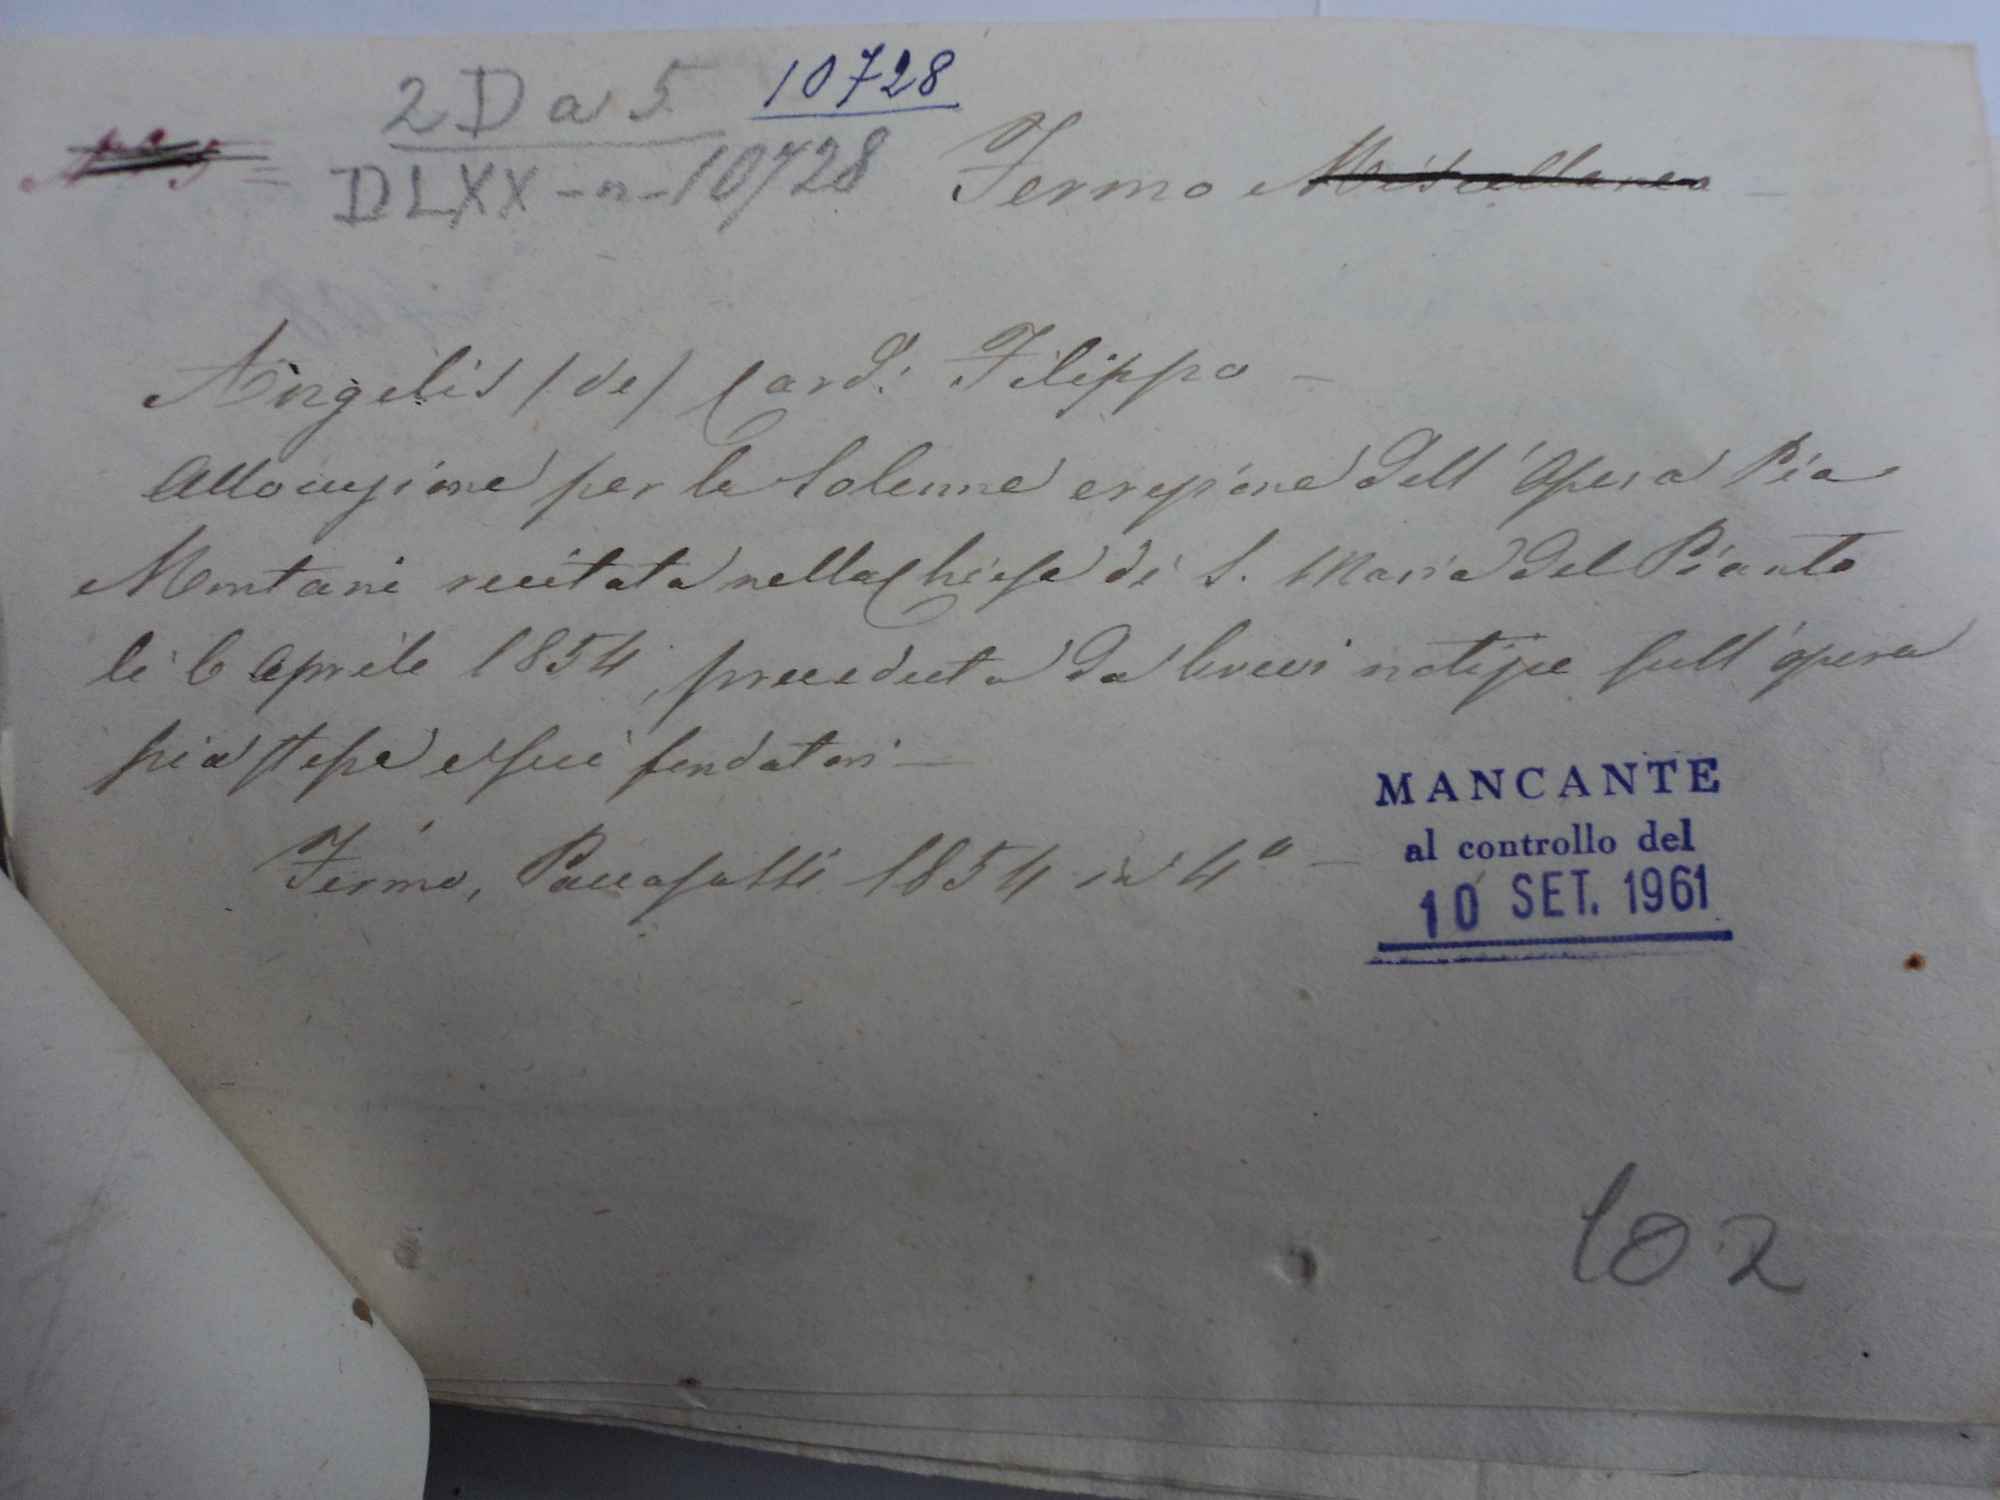 2 D a 5 10728
DLXX - n - 10728 Fermo Miscellanea -
Angelis (de) Card. Filippo -
Allocuzione per la solenne erezione dell'Opera Pia
Montani recitata nella Chiesa di S. Maria del Pianto
li 6 Aprile 1854, preceduta da brevi notizie sull'opera
pia stessa e suoi fondatori -
Fermo, Paccasassi 1854 in 4° -
MANCANTE
al controllo del
10 SET. 1961
102